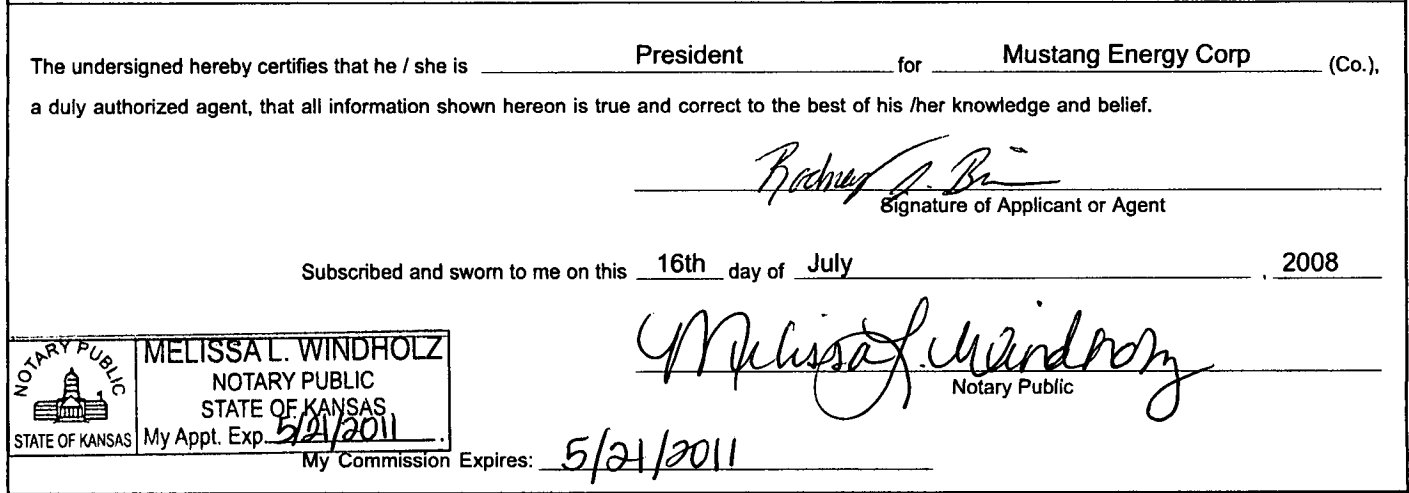 The undersigned hereby certifies that he / she is President for Mustang Energy Corp (Co.),
a duly authorized agent, that all information shown hereon is true and correct to the best of his /her knowledge and belief.
Rodney J. B
Signature of Applicant or Agent
Subscribed and sworn to me on this 16th day of July , 2008
Melissa L. Windholz
Notary Public
NOTARY PUBLIC
STATE OF KANSAS
MELISSA L. WINDHOLZ
NOTARY PUBLIC
STATE OF KANSAS
My Appt. Exp. 5/21/2011 .
My Commission Expires: 5/21/2011